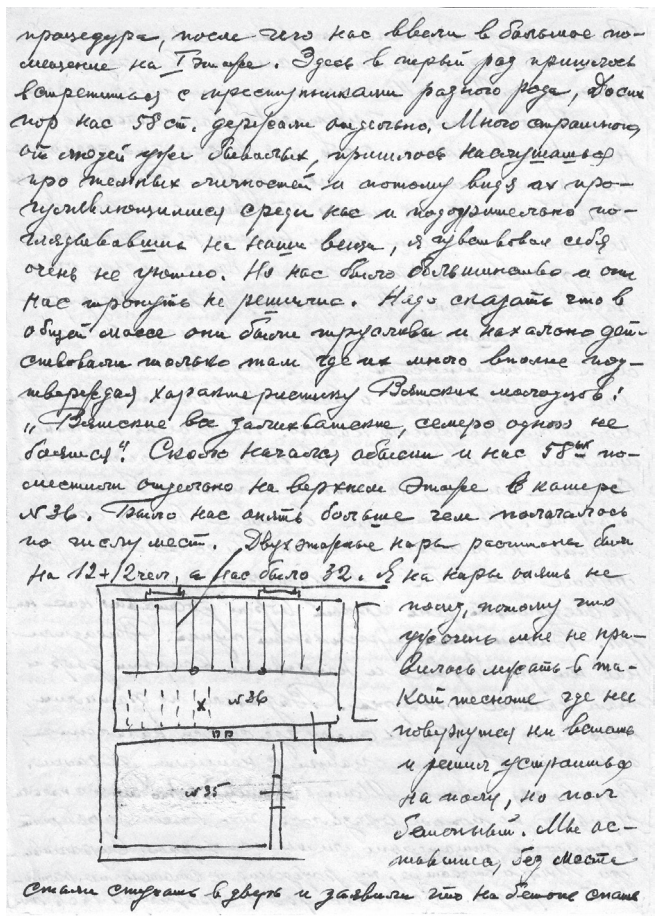 процедура, после чего нас ввели в большое по-
мещение на I этаже. Здесь в первый раз пришлось
встретиться с преступниками разного рода, До сих
пор нас 58 ст. держали отдельно. Много страшного,
от людей уже бывалых, пришлось наслушаться
про темных личностей и потому видя их про-
гуливающимися среди нас и подозрительно по-
глядывавших на наши вещи, я чувствовал себя
очень не уютно. Но нас было большинство и они
нас тронуть не решились. Надо сказать что в
общей массе они были трусливы и нахально дей-
ствовали только там где их много вполне под-
тверждая характеристику Вятских молодцов!
„Вятские все заликватские, семеро одного не
боятся". Скоро начался обыск и нас 58ых по-
местили отдельно на верхнем этаже в камере
№36. Было нас опять больше чем полагалось
по числу мест. Двухэтажные нары расчитаны были
на 12+12 чел, а нас было 32. Я на нары опять не
полез, потому что
уж очень мне не нра-
вилось лежать в та-
кой тесноте где ни
повернуться ни встать
и решил устроиться
на полу, но пол
бетонный. Мы ос-
тавшиеся, без места
стали стучать в дверь и заявили что на бетоне спать
№36
X
№35